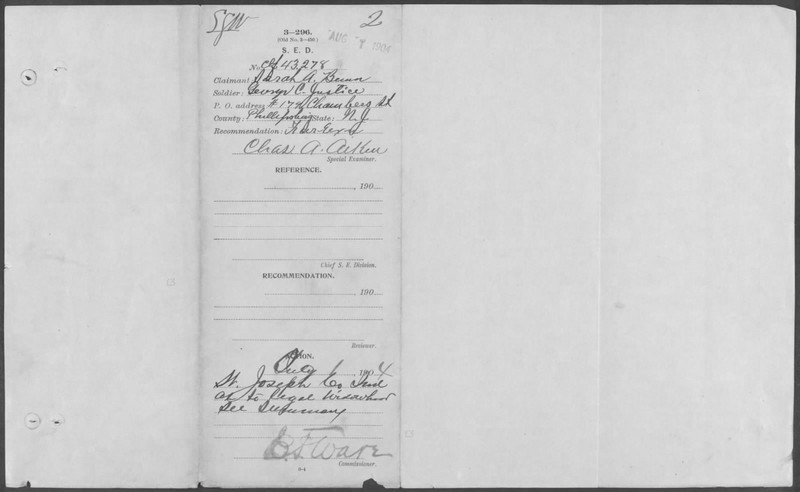 2
3—296.
(Old No. 3—430.)
AUG 9 1904
S. E. D.
No. 43,278
Claimant: Sarah A. Bunn
Soldier: George C. Justice
P. O. address: # 174 Chambers St
County: Phillipsburg State: N.J.
Recommendation:
Chas. A. Aitken
Special Examiner.
REFERENCE.
, 190
Chief S. E. Division.
RECOMMENDATION.
, 190
Reviewer.
ACTION.
Aug 1904
St. Joseph Co Ind
as to legal widowhood
See Summary
E.F. Ware
Commissioner.